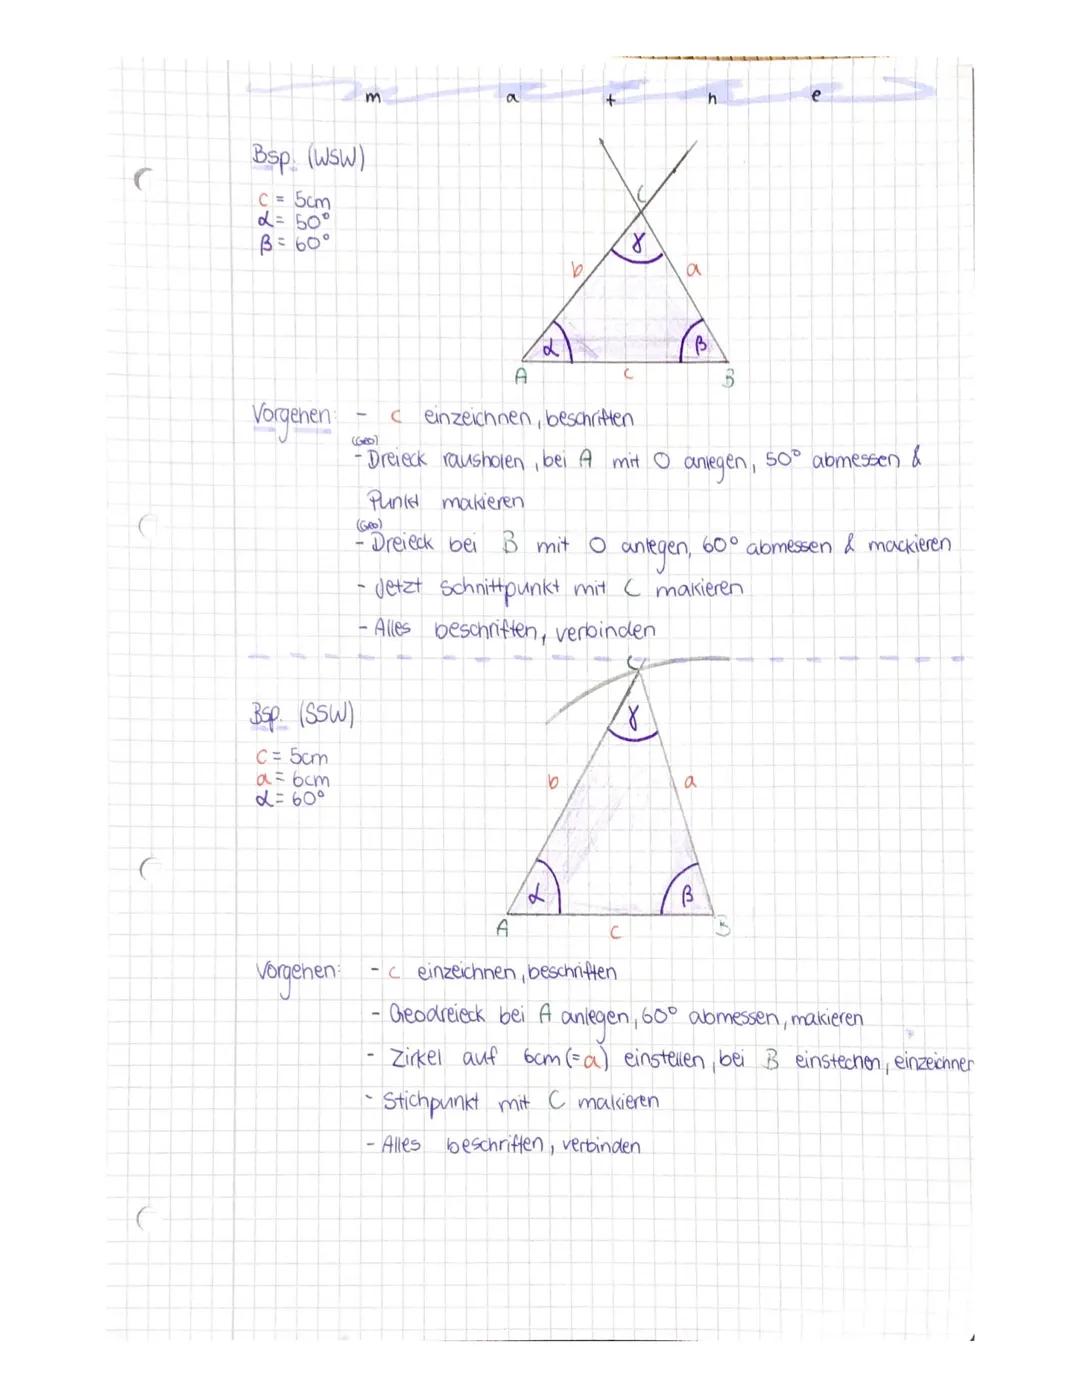 m a t h e
Bsp. (WSW)
c = 5cm
α = 50°
β = 60°
C
γ
b
a
α
β
A
c
B
Vorgehen: - c einzeichnen, beschriften
(Geo)
- Dreieck rausholen, bei A mit O anlegen, 50° abmessen &
Punkt makieren
(Geo)
- Dreieck bei B mit O anlegen, 60° abmessen & mackieren
- Jetzt Schnittpunkt mit C makieren
- Alles beschriften, verbinden
C
Bsp. (SSW)
γ
c = 5cm
a = 6cm
α = 60°
b
a
α
β
A
c
B
Vorgehen: - c einzeichnen, beschriften
- Geodreieck bei A anlegen, 60° abmessen, makieren
- Zirkel auf 6cm (=a) einstellen, bei B einstechen, einzeichnen
- Stichpunkt mit C makieren
- Alles beschriften, verbinden